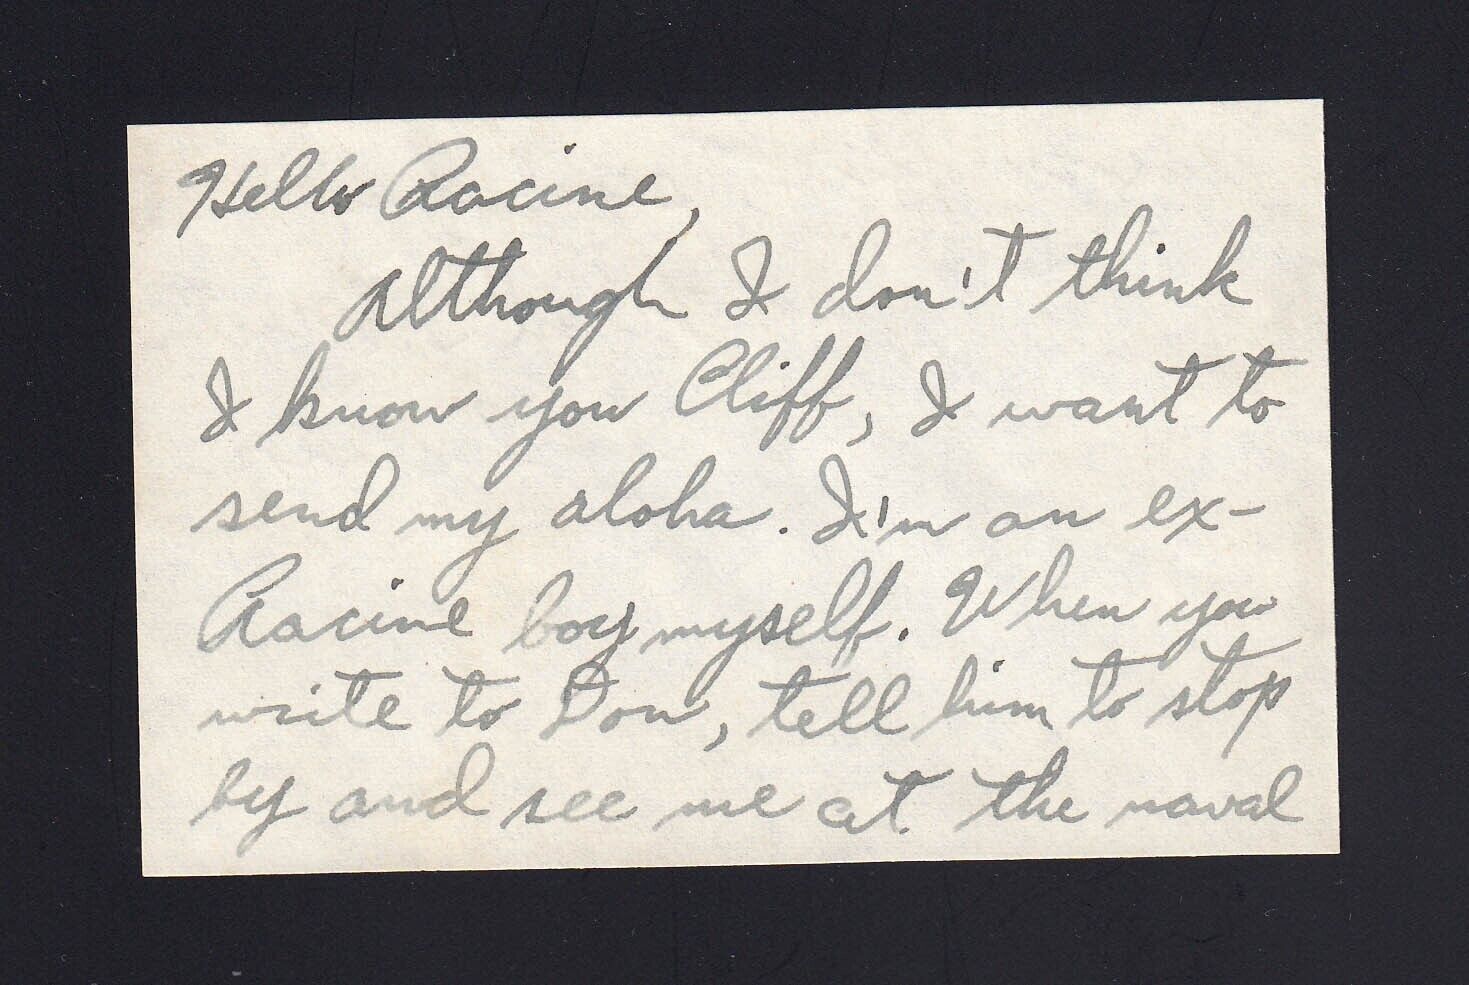 Hello Racine,
Although I don't think
I know you Cliff, I want to
send my aloha. I'm an ex-
Racine boy myself. When you
write to Don, tell him to stop
by and see me at the naval